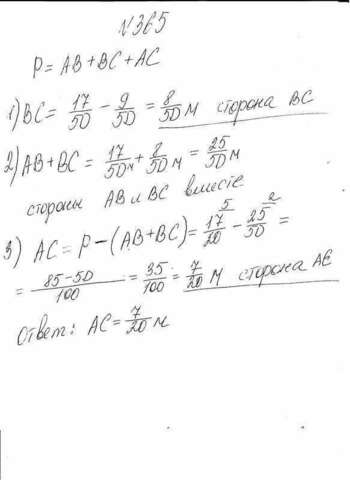 №365
P = AB + BC + AC
1) BC = 17/50 - 9/50 = 8/50 м сторона BC
2) AB + BC = 17/50 м + 8/50 м = 25/50 м
стороны AB и BC вместе
3) AC = P - (AB + BC) = 17/20 ⁵ - 25/50 ² =
= 85-50/100 = 35/100 = 7/20 м сторона AC
ответ: AC = 7/20 м